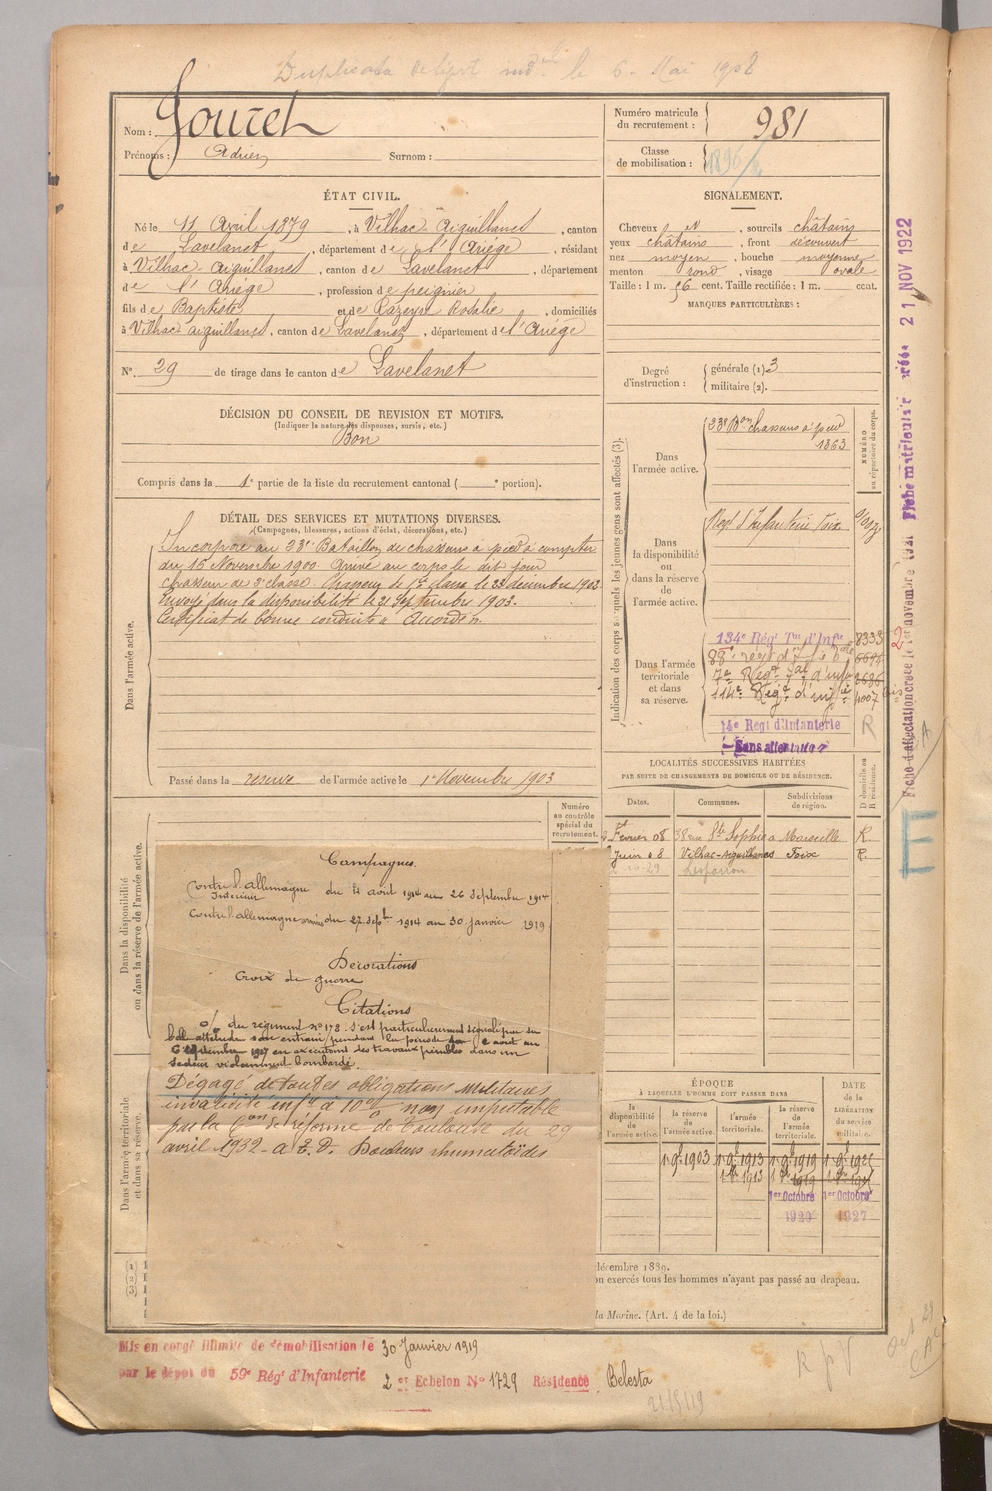 Duplicata de livret ind.el le 6 Mai 1908
Nom : Jouret
Prénoms : Adrien Surnom :
Numéro matricule du recrutement : 981
Classe de mobilisation : 1896
ÉTAT CIVIL.
Né le 11 Avril 1879, à Vilhac-Aiguillanes, canton
de Lavelanet, département de l'Ariège, résidant
à Vilhac-Aiguillanes, canton de Lavelanet, département
de l'Ariège, profession de peignier
fils de Baptiste et de Razeyre Rosalie, domiciliés
à Vilhac aiguillanes, canton de Lavelanet, département de l'Ariège
N° 29 de tirage dans le canton de Lavelanet
SIGNALEMENT.
Cheveux et, sourcils châtains
yeux châtains, front découvert
nez moyen, bouche moyenne
menton rond, visage ovale
Taille : 1 m. 56 cent. Taille rectifiée : 1 m. cent.
MARQUES PARTICULIÈRES :
Degré d'instruction : générale (1) 3
militaire (2).
DÉCISION DU CONSEIL DE REVISION ET MOTIFS.
(Indiquer la nature des dispenses, sursis, etc.)
Bon
Compris dans la 1e partie de la liste du recrutement cantonal ( e portion).
DÉTAIL DES SERVICES ET MUTATIONS DIVERSES.
(Campagnes, blessures, actions d'éclat, décorations, etc.)
Dans l'armée active.
Incorporé au 23e Bataillon de chasseurs à pied à compter
du 15 Novembre 1900. Arrivé au corps le dit jour
chasseur de 2e classe. Chasseur de 1re classe le 23 décembre 1902
Envoyé dans la disponibilité le 21 Septembre 1903.
Certificat de bonne conduite "Accordé".
Passé dans la réserve de l'armée active le 1er Novembre 1903
Indication des corps auxquels les jeunes gens sont affectés (3).
NUMÉRO au répertoire du corps.
Dans l'armée active.
23e Bon chasseurs à pied
1363
Dans la disponibilité ou dans la réserve de l'armée active.
Régt d'Infanterie Foix
Dans l'armée territoriale et dans sa réserve.
134e Régt Tal d'Infie 8333
88e régt d'
7e Régt Tal d'infie
114e Régt d'infie
14e Regt d'Infanterie R
Sans affectation
Fiche d'affectation créée le 1er novembre 1921 Fiche matriculaire créée 21 NOV 1922
LOCALITÉS SUCCESSIVES HABITÉES
PAR SUITE DE CHANGEMENTS DE DOMICILE OU DE RÉSIDENCE.
Dates. Communes. Subdivisions de région. D domicile ou R résidence.
Février 08 38 rue Ste Sophie à Marseille R.
Juin 08 Vilhac-Aiguillanes Foix R.
Numéro au contrôle spécial du recrutement.
Dans la disponibilité ou dans la réserve de l'armée active.
Campagnes.
Contre l'allemagne du 4 août 1914 au 26 Septembre 1914
Intérieur
Contre l'allemagne armées du 27 Sepbre 1914 au 30 janvier 1919
Décorations
Croix de guerre
Citations
o/ du régiment n° 173. s'est particulièrement signalé par sa
belle attitude son entrain pendant la période du août au
septembre 1917 en exécutant des travaux pénibles dans un
secteur violemment bombardé.
Dans l'armée territoriale et dans sa réserve.
Dégagé de toutes obligations militaires
invalidité infre à 10% non imputable
par la Con de réforme de Toulouse du 29
avril 1932 - a E. D. Douleurs rhumatoïdes
ÉPOQUE
À LAQUELLE L'HOMME DOIT PASSER DANS
la disponibilité de l'armée active. la réserve de l'armée active. l'armée territoriale. la réserve de l'armée territoriale.
DATE de la LIBÉRATION du service militaire.
1 9bre 1903 1 9bre 1913 1 9bre 1919
1er Octobre 1er Octobre
1920 1927
(1)
(2)
(3)
décembre 1889.
on exercés tous les hommes n'ayant pas passé au drapeau.
la Marine. (Art. 4 de la loi.)
Mis en congé illimité de démobilisation le 30 Janvier 1919
par le dépôt du 59e Rég' d'Infanterie 2 er Echelon N° 1729 Résidence Belesta
R p V